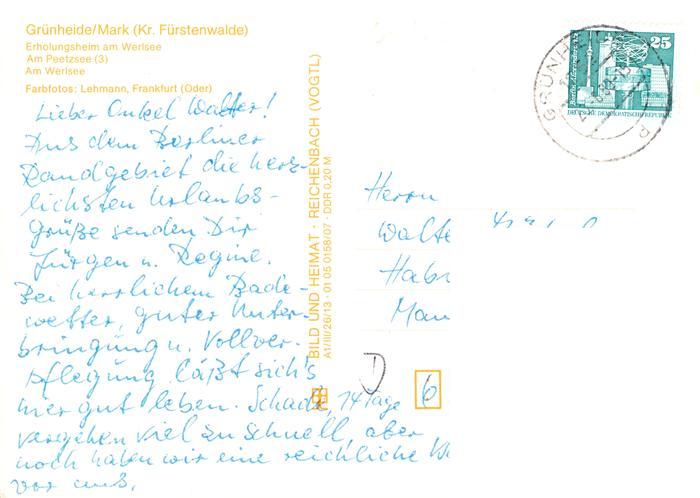 Grünheide/Mark (Kr. Fürstenwalde)
Erholungsheim am Werlsee
Am Peetzsee (3)
Am Werlsee
Farbfotos: Lehmann, Frankfurt (Oder)
Lieber Onkel Walter!
Aus dem Berliner
Randgebiet die herz-
lichsten Urlaubs-
grüße senden Dir
Jürgen u. Regine.
Bei herrlichem Bade-
wetter, guter Unter-
bringung u. Vollver-
pflegung läßt sich's
hier gut leben. Schade, 14 Tage
vergehen viel zu schnell, aber
noch haben wir eine reichliche
vor uns.
BILD UND HEIMAT · REICHENBACH (VOGTL)
A1/III/26/13 · 01 05 0158/07 · DDR 0,20 M
Herrn
Walte
Habr
Man
D
6
25
DEUTSCHE DEMOKRATISCHE REPUBLIK
GRÜNHEI